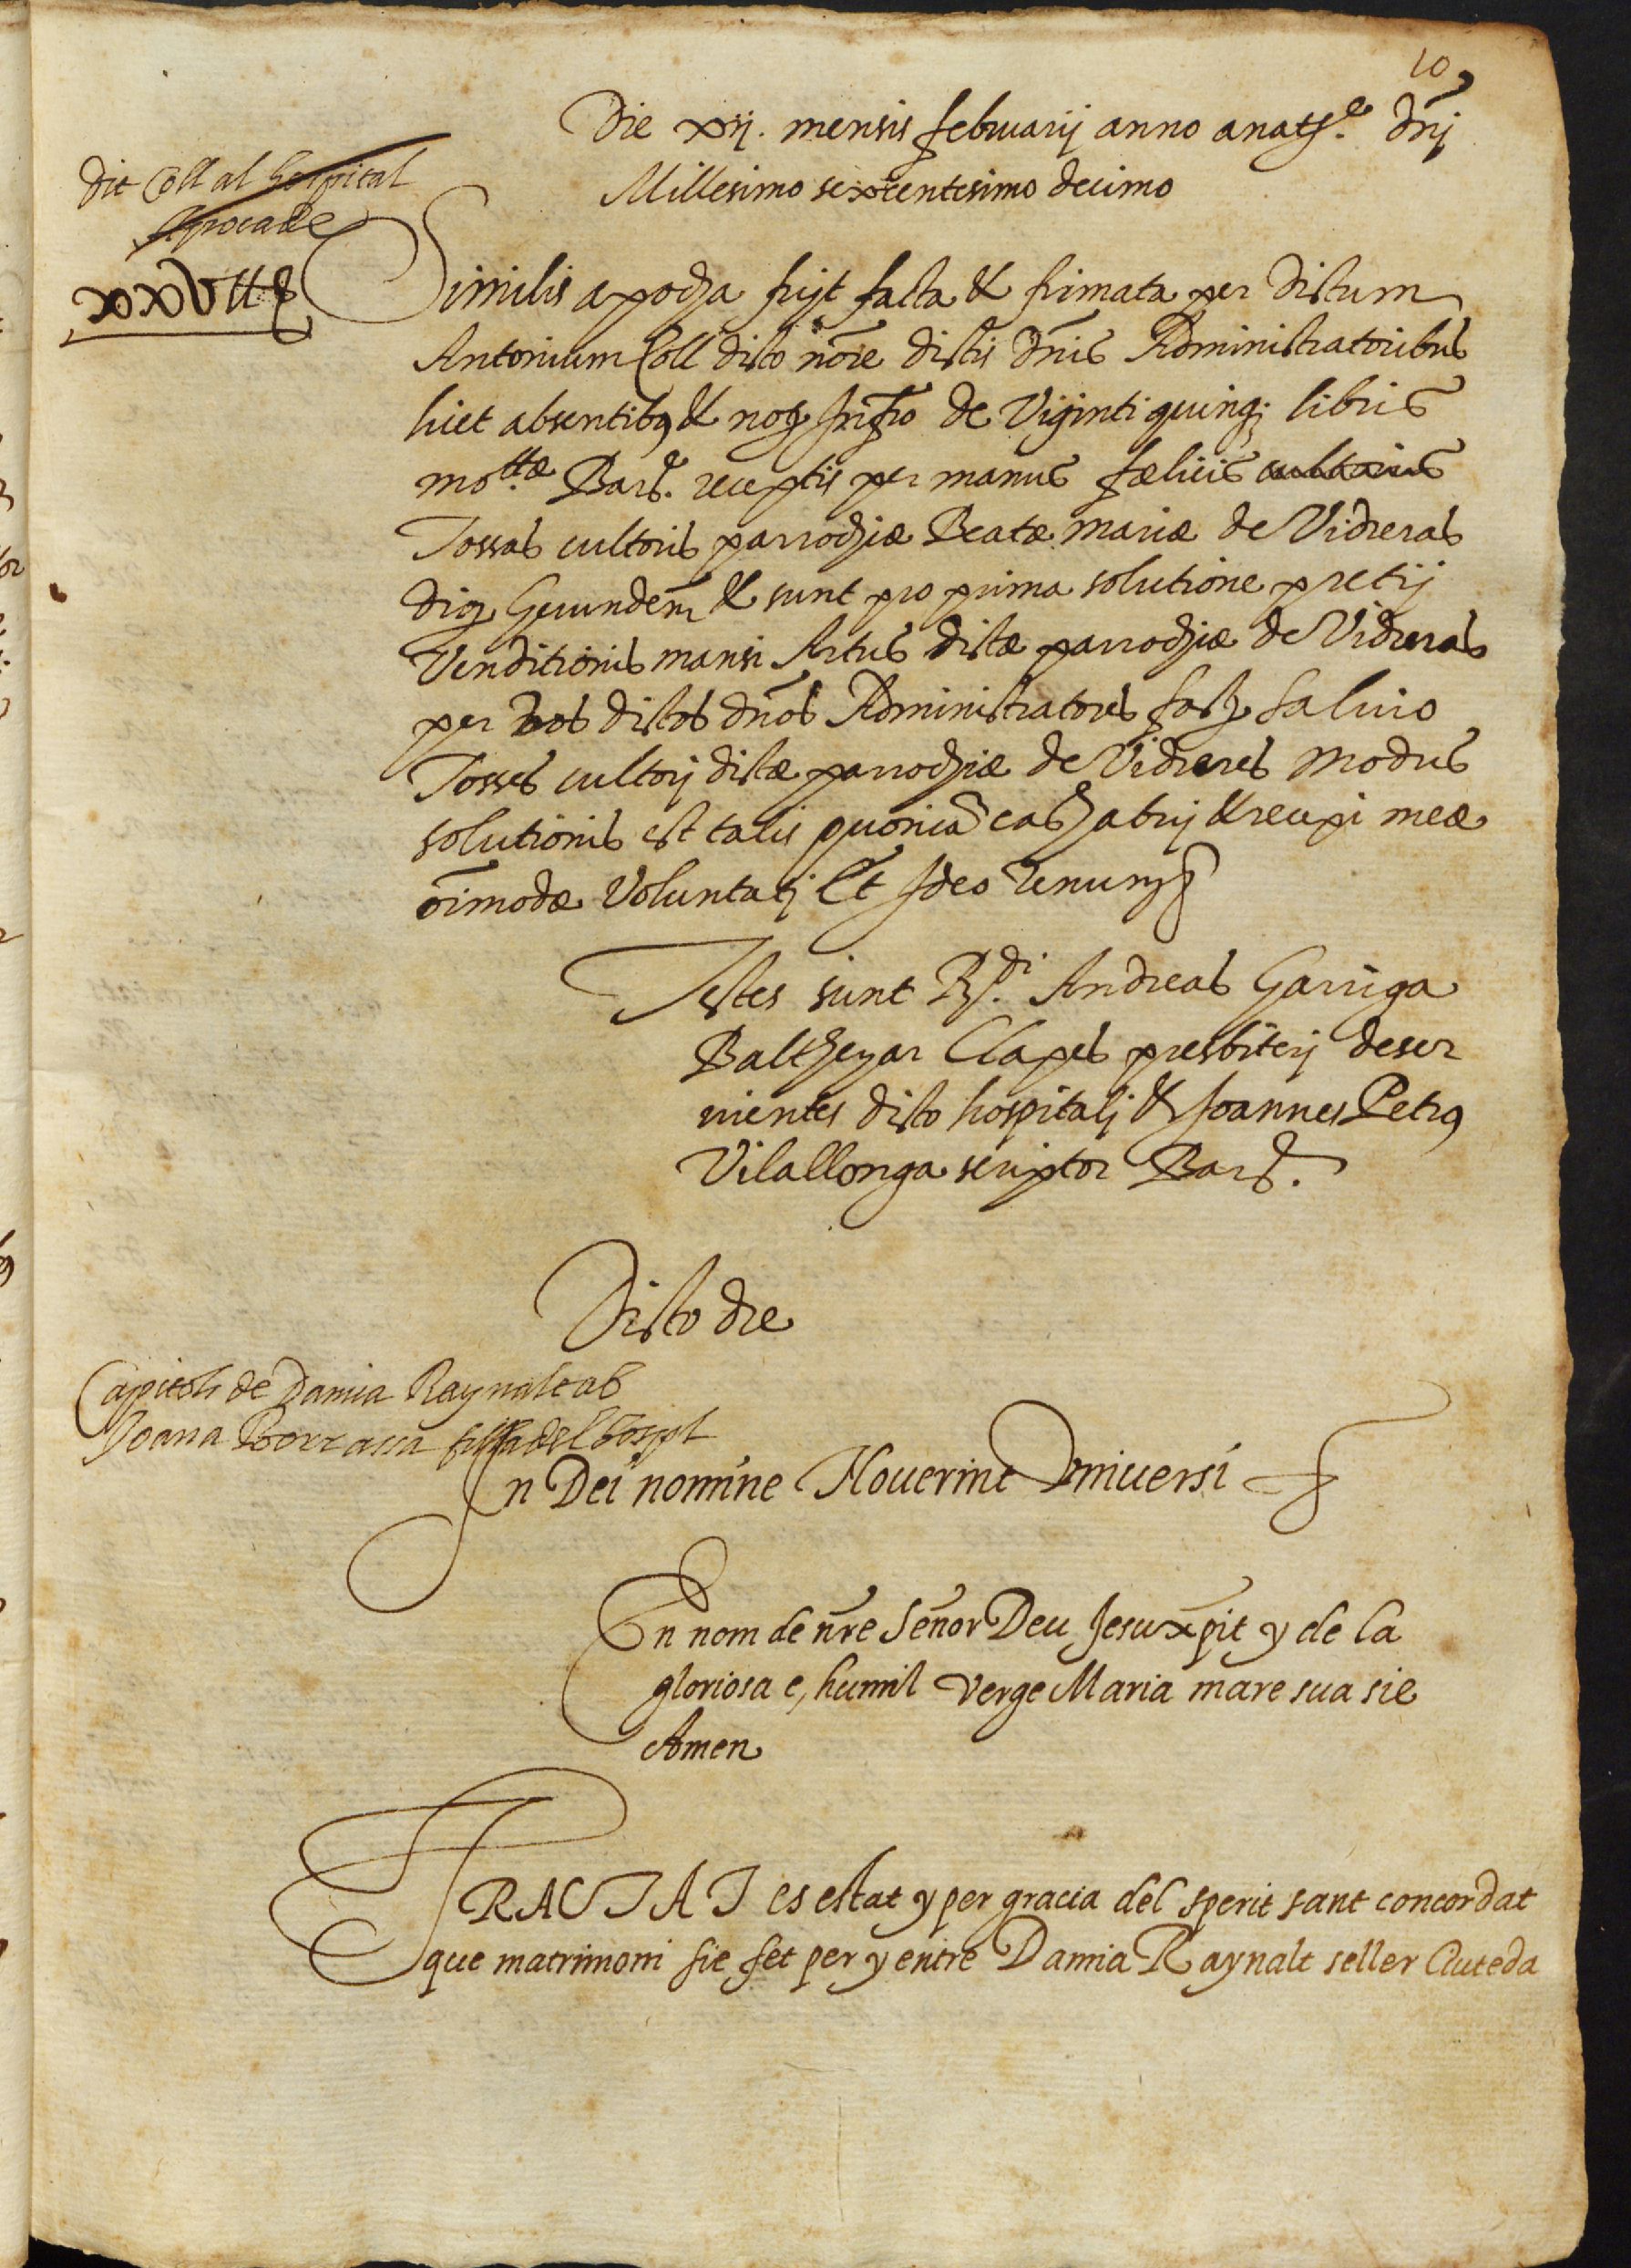 10
Die xij. mensis februarij anno a natte. Dnj
Millesimo sexcentesimo decimo
Dit Coll al hospital
Apoca de
xxv ll
Similis apocha fujt facta & firmata per dictum
Antonium Coll dicto nõre dictis Dnis Administratoribus
licet absentibs & noto infro de Viginti quinq; libris
mottæ Barne. receptis per manus fælicis cultoris
Tossas cultoris parrochiæ Beatæ mariæ de Vidreras
dioc Gerundem & sunt pro prima solutione pretij
Venditionis mansi Artus dictæ parrochiæ de Vidreras
per vos dictos dños Administratores factæ saluio
Tosses cultorj dictæ parrochiæ de Vidreres Modus
solutionis est talis quoniã eas habuj & recepi meæ
oimodæ Voluntatj Et Ideo renun
Testes sunt Rdi. Andreas Garriga
Balthezar Clapes presbiterj deser
uientes dicto hospitalj & Joannes Petrus
Vilallonga scriptor Barne.
Dicto die
Capitols de Damia Raynalt ab
Joana Borrassa filla del hospl
In Dei nomine Nouerint Vniuersi
En nom de nře Señor Deu Jesu xpit y de la
gloriosa e, humil verge Maria mare sua sie
Amen
TRACTAT es estat y per gracia del sperit sant concordat
que matrimoni sie fet per y entre Damia Raynalt seller Ciuteda